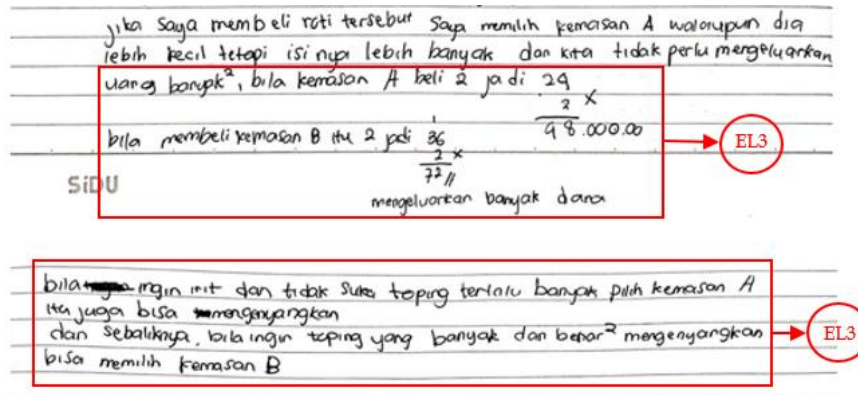 jika saya membeli roti tersebut saya memilih kemasan A walaupun dia
lebih kecil tetapi isi nya lebih banyak dan kita tidak perlu mengeluarkan
uang banyak², bila kemasan A beli 2 jadi 24
2 x
48.000.00
bila membeli kemasan B itu 2 jadi 36
1
2 x
72 //
EL3
SiDU
mengeluarkan banyak dana
bila ingin irit dan tidak suka toping terlalu banyak pilih kemasan A
itu juga bisa mengenyangkan
dan sebaliknya, bila ingin toping yang banyak dan benar² mengenyangkan
bisa memilih kemasan B
EL3